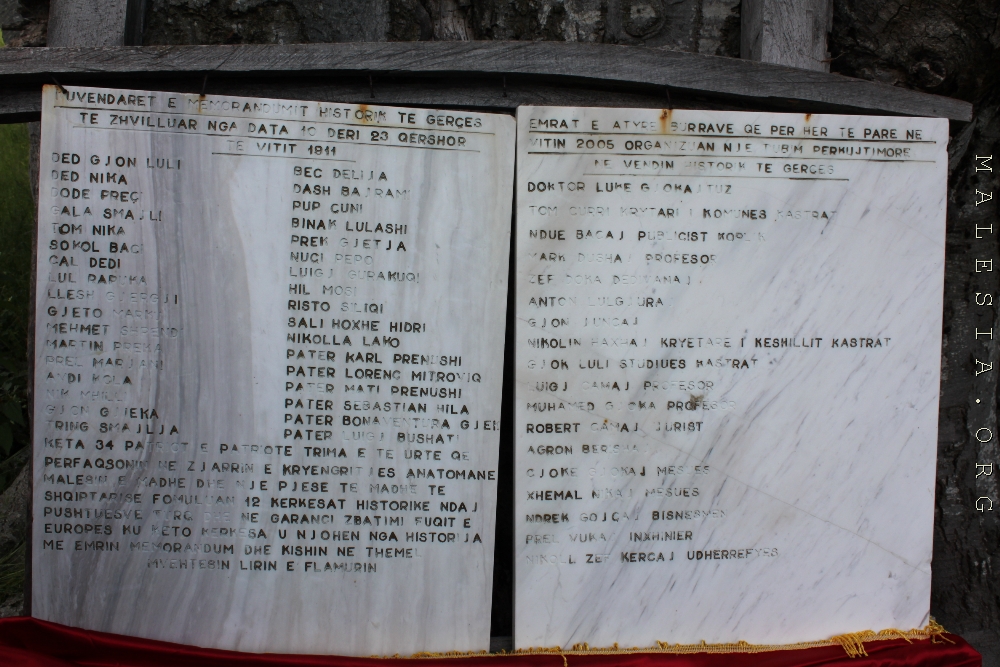 KUVENDARET E MEMORANDUMIT HISTORIK TE GERÇES
TE ZHVILLUAR NGA DATA 10 DERI 23 QERSHOR
TE VITIT 1911
DED GJON LULI
DED NIKA
DODE PREÇI
SALA SMAJLI
TOM NIKA
SOKOL BACI
CAL DEDI
LUL RAPUKA
LLESH GJERGJI
GJETO MARKU
MEHMET SHPENDI
MARTIN PREKA
PREL MARJANI
AVDI KOLA
NIK MHILLI
GJON GJEKA
TRING SMAJLJA
BEC DELIJA
DASH BAJRAMI
PUP CUNI
BINAK LULASHI
PREK GJETJA
NUCI PERO
LUIGJ GURAKUQI
HIL MOSI
RISTO SILIQI
SALI HOXHE HIDRI
NIKOLLA LAKO
PATER KARL PRENUSHI
PATER LORENC MITROVIQ
PATER MATI PRENUSHI
PATER SEBASTIAN HILA
PATER BONAVENTURA GJEK
PATER LUIGJ BUSHATI
KETA 34 PATRIOT E PATRIOTE TRIMA E TE URTE QE
PERFAQSONIN NE ZJARRIN E KRYENGRITJES ANATOMANE
MALESIN E MADHE DHE NJE PJESE TE MADHE TE
SHQIPTARISE FOMULUAN 12 KERKESAT HISTORIKE NDAJ
PUSHTUESVE TURQ DHE NE GARANCI ZBATIMI FUQIT E
EUROPES KU KETO KERKESA U NJOHEN NGA HISTORIJA
ME EMRIN MEMORANDUM DHE KISHIN NE THEMEL
MVEHTESIN LIRIN E FLAMURIN
EMRAT E ATYRE BURRAVE QE PER HER TE PARE NE
VITIN 2005 ORGANIZUAN NJE TUBIM PERKUJTIMORE
NE VENDIN HISTORIK TE GERÇES
DOKTOR LUKE GJOKAJ TUZ
TOM CURRI KRYTARI I KOMUNES KASTRAT
NDUE BACAJ PUBLICIST KOPLIK
MARK DUSHAJ PROFESOR
ZEF DOKA
ANTON LULGJURA
GJON JUNCAJ
NIKOLIN HAXHAJ KRYETARE I KESHILLIT KASTRAT
GJOK LULI STUDIUES KASTRAT
LUIGJ CAMAJ PROFESOR
MUHAMED GJOKA PROFESOR
ROBERT CAMAJ JURIST
AGRON BERISHA
GJOKE GJOKAJ MESUES
XHEMAL NIKAJ MESUES
NDREK GOJCAJ BISNESMEN
PREL VUKAJ INXHNIER
NIKOLL ZEF KERCAJ UDHERREFYES
MALESIA.ORG